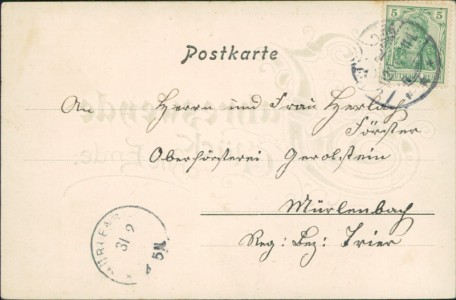 5 5
Postkarte
An Herrn und Frau Herlach
Förster
Oberförsterei Gerolstein
Mürlenbach
Reg: Bez: Trier
31 9